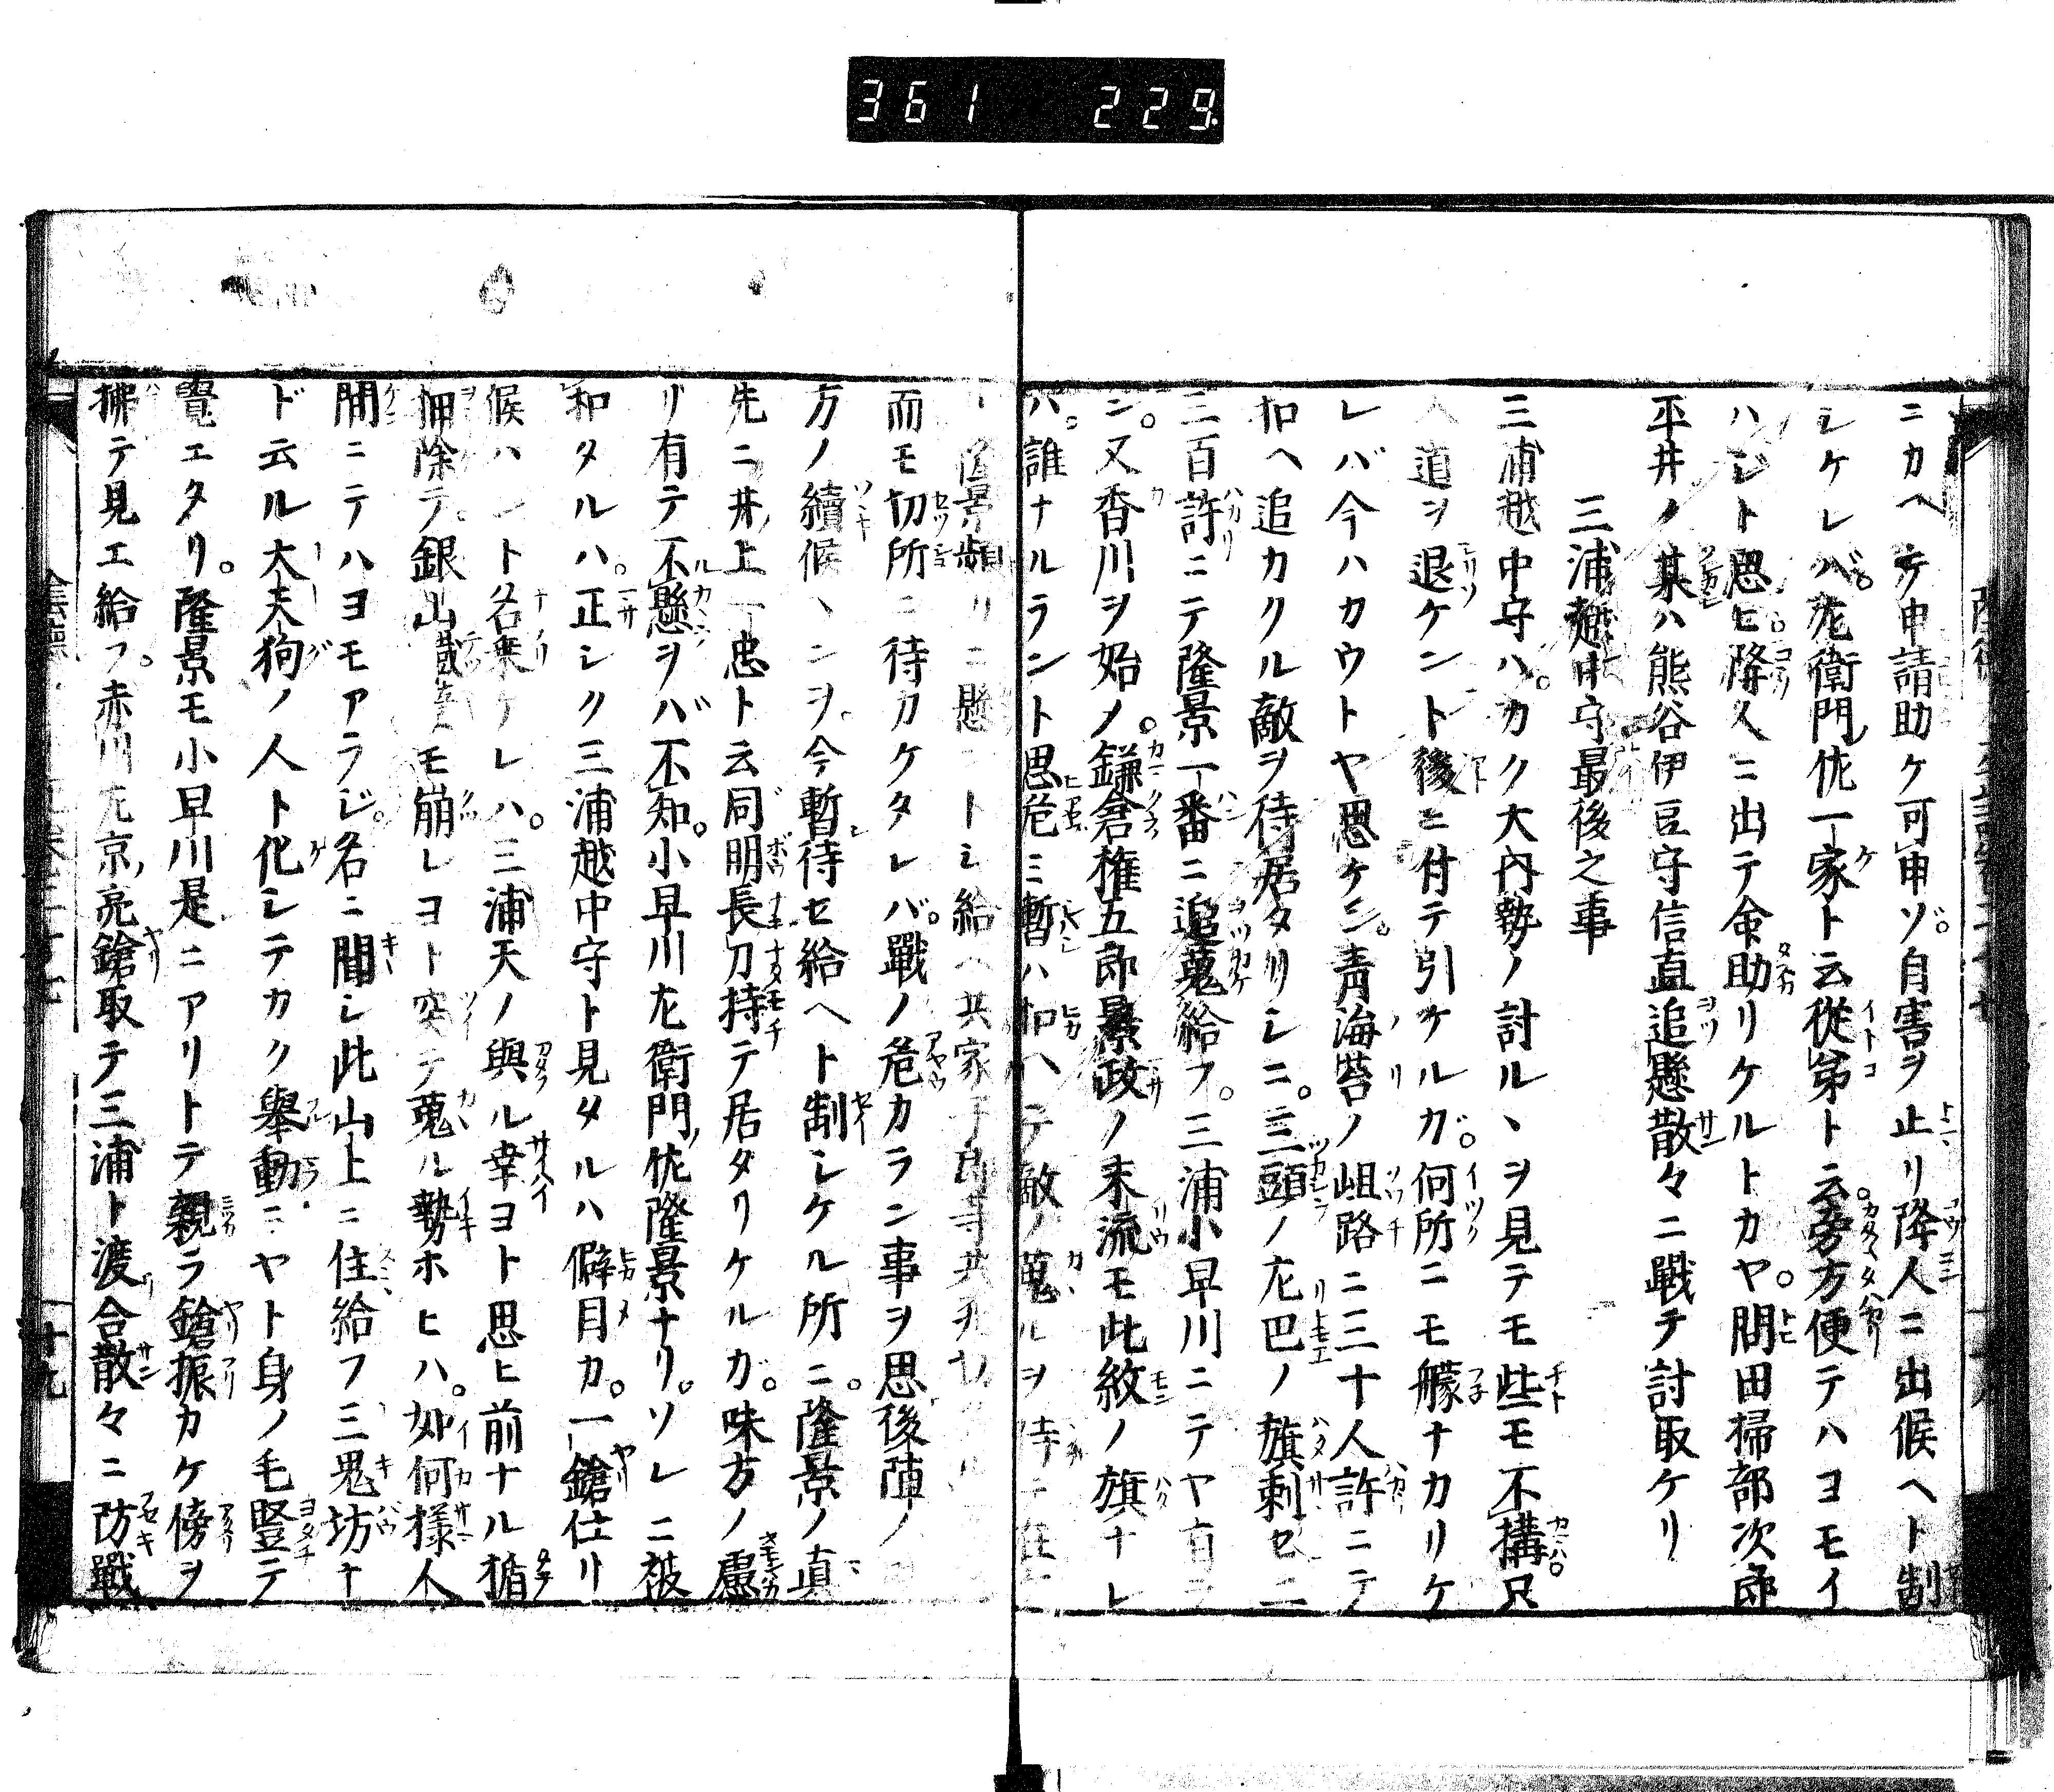 361 229
ニカヘテ申請助ケ可申ゾ。自害ヲ止リ降人ニ出候ヘト制
シケレバ。左衛門佐一家ト云從弟ト云。旁方便テハヨモイ
ハジト思ヒ降人ニ出テ命助リケルトカヤ。問田掃部次郎
平井ノ某ハ熊谷伊豆守信直追懸散々ニ戰テ討取ケリ
三浦越中守最後之事
三浦越中守ハ。カク大内勢ノ討ルヽヲ見テモ些モ不構只
道ヲ退ケント後ニ付テ引ケルガ。何所ニモ艨ナカリケ
レバ今ハカウトヤ思ケン。青海苔ノ岨路ニ三十人許ニテ
扣ヘ追カクル敵ヲ待居タリシニ。三頭ノ左巴ノ旗刺セ二
三百許ニテ隆景一番ニ追蒐給フ。三浦小早川ニテヤ有ラ
ン。又香川ヲ始メ。鎌倉權五郎景政ノ末流モ此紋ノ旗ナレ
ハ。誰ナルラント思危ミ暫ハ扣ヘテ敵ノ蒐ルヲ待
隆景頻リニ懸ントシ給ヘ共家子郎等共
而モ切所ニ待カケタレバ。戰ノ危カラン事ヲ思後陣ノ
方ノ續候ハンヲ。今暫待セ給ヘト制シケル所ニ。隆景ノ真
先ニ井上一忠ト云同明長刀持テ居タリケルガ。味方ノ慮
リ有テ不懸ヲバ不知。小早川左衛門佐隆景ナリ。ソレニ被
扣タルハ。正シク三浦越中守ト見タルハ僻目カ。一鎗仕リ
候ハント名乗ケレハ。三浦天ノ與ル幸ヨト思ヒ前ナル楯
押除テ。銀山鐵壁モ崩レヨト突テ蒐ル勢ホヒハ。如何樣人
間ニテハヨモアラジ。名ニ聞シ此山上ニ住給フ三鬼坊ナ
ド云ル大天狗ノ人ト化シテカク擧動ニヤト身ノ毛竪テ
覺エタリ。隆景モ小早川是ニアリトテ親ラ鎗振カケ傍ヲ
拂テ見エ給フ。赤川左京亮鎗取テ三浦ト渡合散々ニ防戰
十九